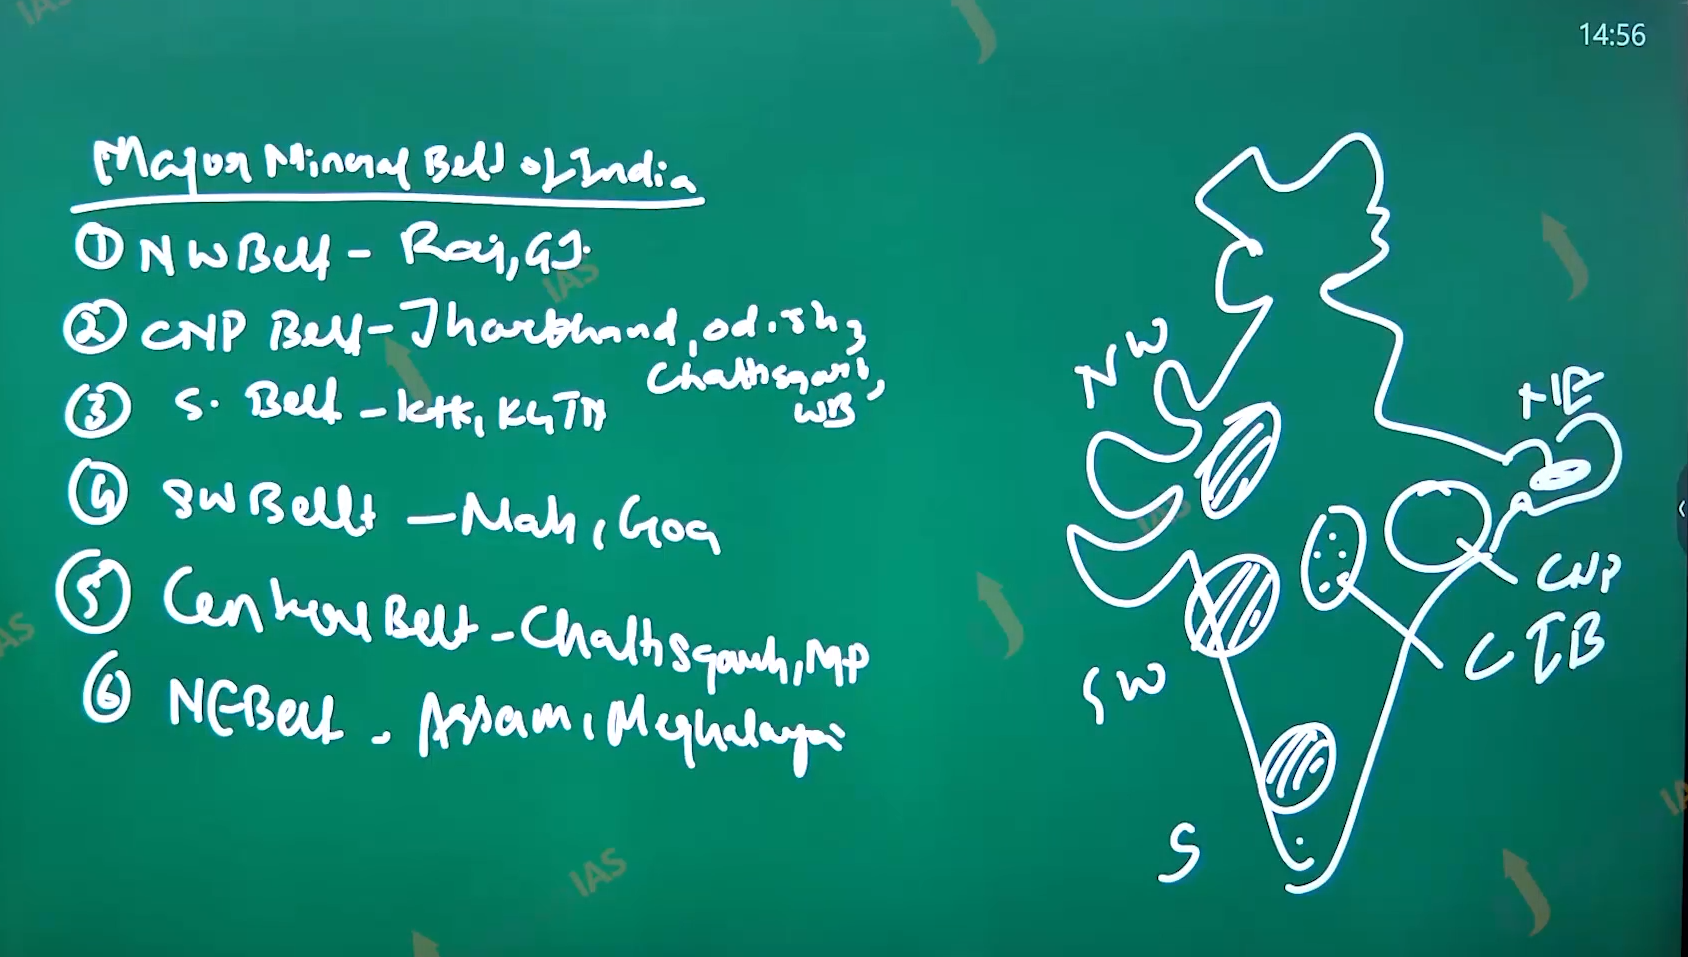 14:56
Major Mineral Belt of India
① NW Belt - Raj, GJ.
② CNP Belt - Jharkhand, odisha,
Chattisgarh,
WB
③ S. Belt - KtK,
④ SW Bellt - Mah, Goa
⑤ Central Belt - Chattisgarh, MP
⑥ NE Belt - Assam, Meghalaya
NW
NE
CNP
CIB
SW
S
IAS
IAS
IAS
IAS
IAS